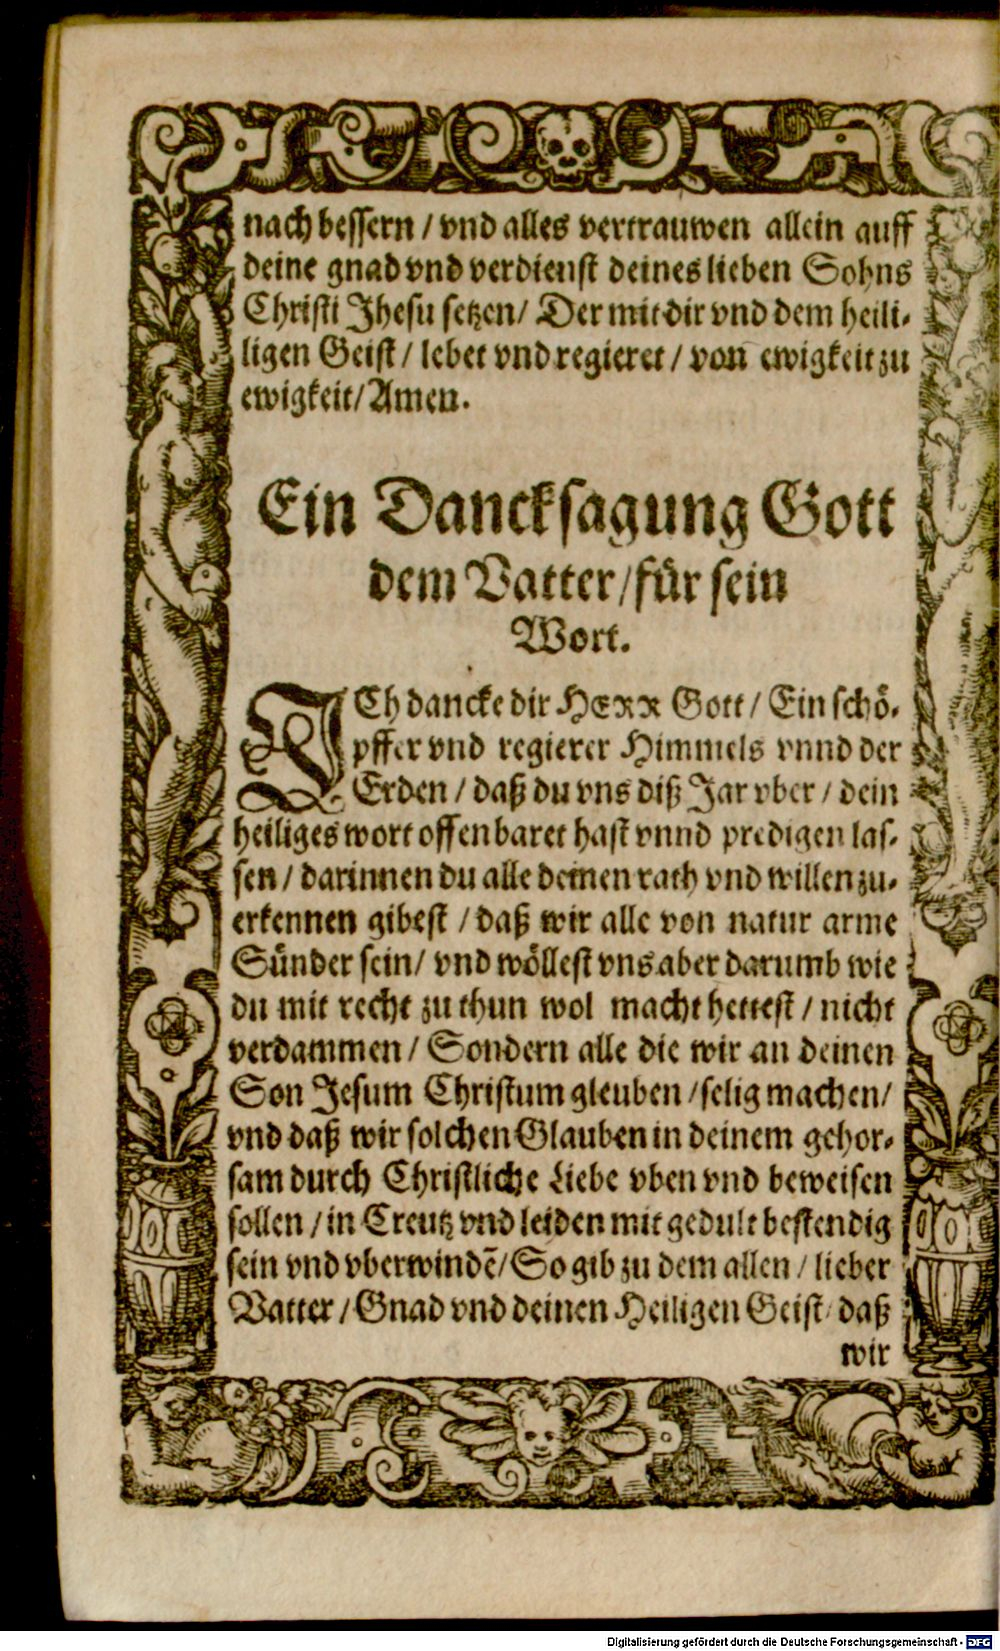 nach bessern / vnd alles vertrauwen allein auff
deine gnad vnd verdienst deines lieben Sohns
Christi Jhesu setzen / Der mit dir vnd dem heili-
ligen Geist / lebet vnd regieret / von ewigkeit zu
ewigkeit / Amen.
Ein Dancksagung Gott
dem Vatter / für sein
Wort.
ICh dancke dir HERR Gott / Ein schö-
pffer vnd regierer Himmels vnnd der
Erden / daß du vns diß Jar vber / dein
heiliges wort offenbaret hast vnnd predigen las-
sen / darinnen du alle deinen rath vnd willen zu-
erkennen gibest / daß wir alle von natur arme
Sünder sein / vnd wöllest vns aber darumb wie
du mit recht zu thun wol macht hettest / nicht
verdammen / Sondern alle die wir an deinen
Son Jesum Christum gleuben / selig machen /
vnd daß wir solchen Glauben in deinem gehor-
sam durch Christliche Liebe vben vnd beweisen
sollen / in Creutz vnd leiden mit gedult bestendig
sein vnd vberwindẽ / So gib zu dem allen / lieber
Vatter / Gnad vnd deinen Heiligen Geist / daß
wir
Digitalisierung gefördert durch die Deutsche Forschungsgemeinschaft - DFG